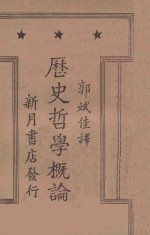 郭斌佳譯
歷史哲學概論
新月書店發行